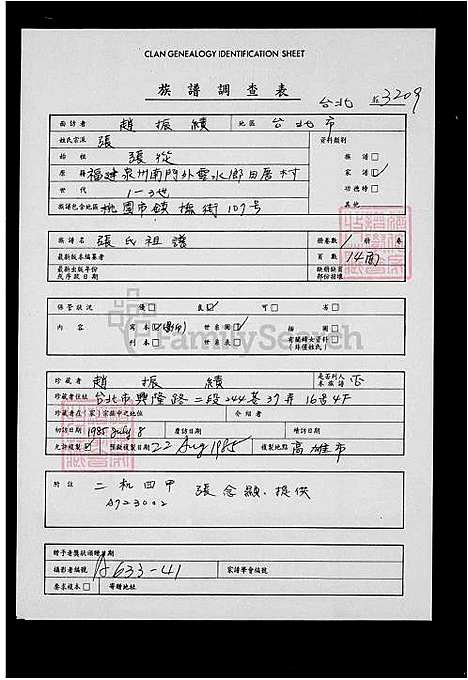 CLAN GENEALOGY IDENTIFICATION SHEET
族譜調查表
台北 3209
面訪者 趙振績 地區 台北市
姓氏宗派 張 資料類別
始祖 張從 族譜□
原籍 福建泉州南門外雲水鄉田厝村 家譜☑
世代 1-3世 功德榜□
族譜包含地區 桃園市鎮撫街107号 其他
族譜名 張氏祖譜 册卷數 1 册 卷
最新版本編纂者 頁數 14面
最新出版年份或序跋日期 缺頁部份註碼
保管狀況 優□ 良☑ 可□ 劣□
內容 寫本☑(影印) 世系圖☑ 插圖□
刊本□ 世系表□ 有關婦女資料□
FamilySearch
珍藏者 趙振績 是否列入本族譜 否
珍藏者住址 台北市興隆路二段244巷37弄16号4F
珍藏者在(家)宗族中之地位 介紹者
初訪日期 1985 July 8 覆訪日期 續訪日期
允許複製☑ 預擬複製日期 22 Aug 1985 複製地點 高雄市
附註 二机四甲 張念顯提供
A723002
贈予者獎狀頒贈日期
攝影者編號 A633-41 家譜學會編號
要求複本□ 寄贈地址